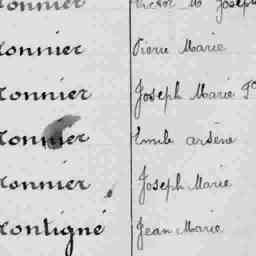 onnier Victor M Joseph
onnier Pierre Marie
onnier Joseph Marie
onnier Emile arsène
onnier Joseph Marie
ontigné Jean Marie